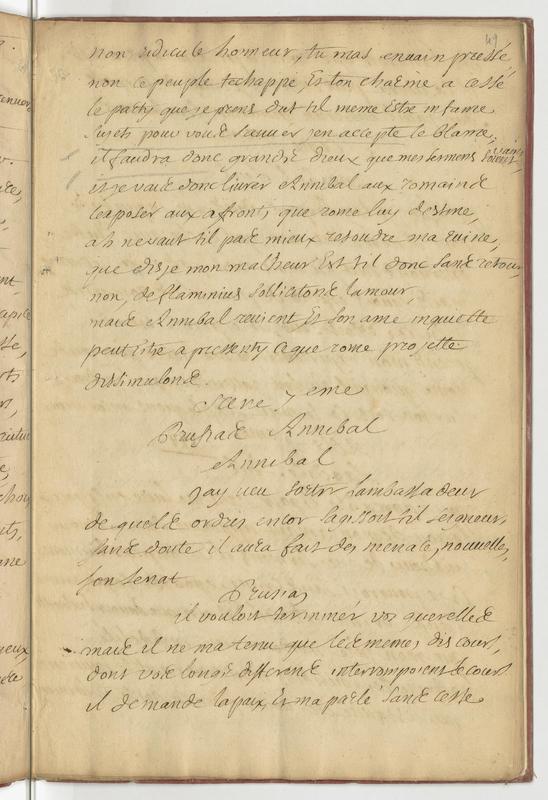 49
non ridicule honneur, tu mas envain pressé
non ce peuple téchappe Est ton charme a cessé
le party que je prens dut til meme Estre infame
Sujets pour vous sauuer jen accepte le blame,
il faudra donc grands dieux que mes serments soient vains
Et je vais donc liurér Annibal aux romains
lexposér aux afronts que rome luy destine,
ah ne vaut til pas mieux resoudre ma ruine,
que disje mon malheur Est til donc sans retour
non, de flaminius sollicitons lamour,
mais Annibal reuient Et son ame inquiette
peut Estre a pressenty ce que rome projette
dissimulons.
Scene 7 eme
Prusias Annibal
Annibal
Jay ueu sortir lambassadeur
de quels ordres encor lagissoit til seigneur
sans doute il aura fait des menaces nouuelles,
son senat
Prusias
il vouloit terminér vos querelles
mais il ne ma tenu que les memes discours,
dont vos longs differends interrompoient le cours
il demande la paix, Et ma parlé sans cesse